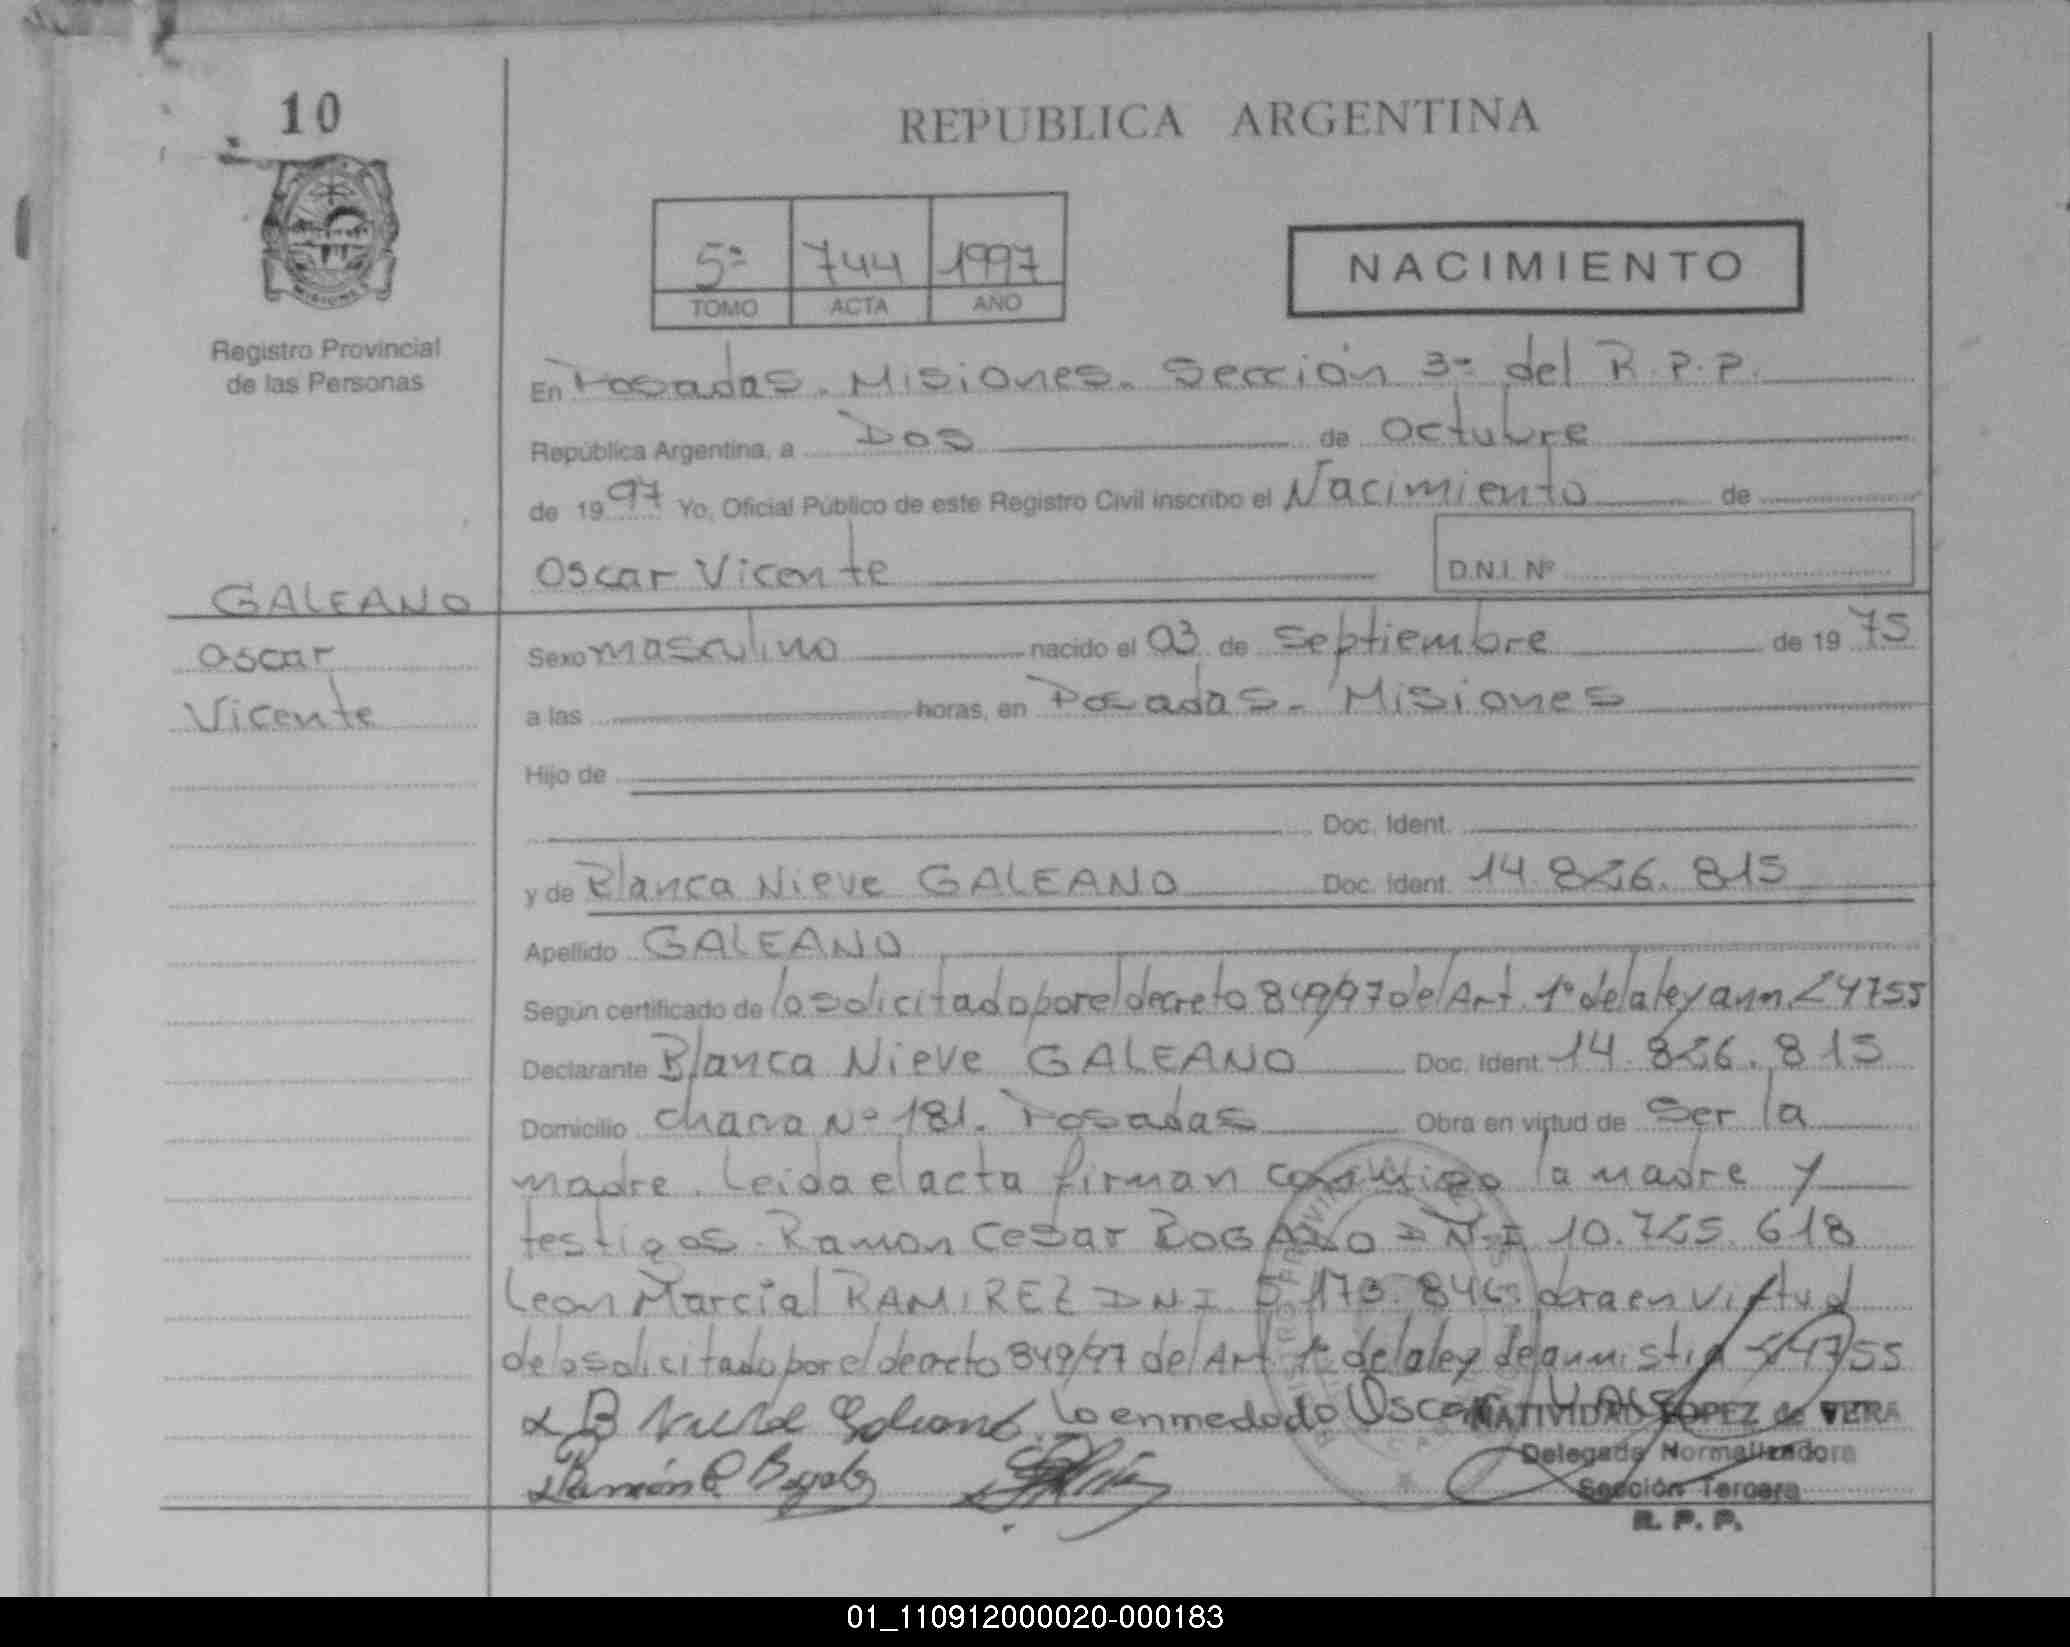 10
REPUBLICA ARGENTINA
5ª 744 1997
TOMO ACTA AÑO
NACIMIENTO
MISIONES
Registro Provincial
de las Personas
En Posadas. Misiones. Sección 3ª del R.P.P.
República Argentina, a Dos de Octubre
de 1997 Yo, Oficial Público de este Registro Civil inscribo el Nacimiento de
Oscar Vicente D.N.I. Nº
GALEANO
Oscar
Vicente
Sexo masculino nacido el 03 de Septiembre de 1975
a las horas, en Posadas. Misiones
Hijo de
Doc. Ident.
y de Blanca Nieve GALEANO Doc. Ident. 14.826.815
Apellido GALEANO
Según certificado de lo solicitado por el decreto 849/97 del Art. 1º de la ley 24755
Declarante Blanca Nieve GALEANO Doc. Ident. 14.826.815
Domicilio chacra Nº 181. Posadas Obra en virtud de Ser la
madre. Leida el acta firman conmigo la madre y
testigos. Ramon Cesar BOGADO D.N.I 10.725.618
Leon Marcial RAMIREZ DNI 5.173.846. obra en virtud
de lo solicitado por el decreto 849/97 del Art. 1º de la ley de amnistia 24755
Oscar
NATIVIDAD LOPEZ de VERA
Delegada Normalizadora
Sección Tercera
R. P. P.
01_110912000020-000183